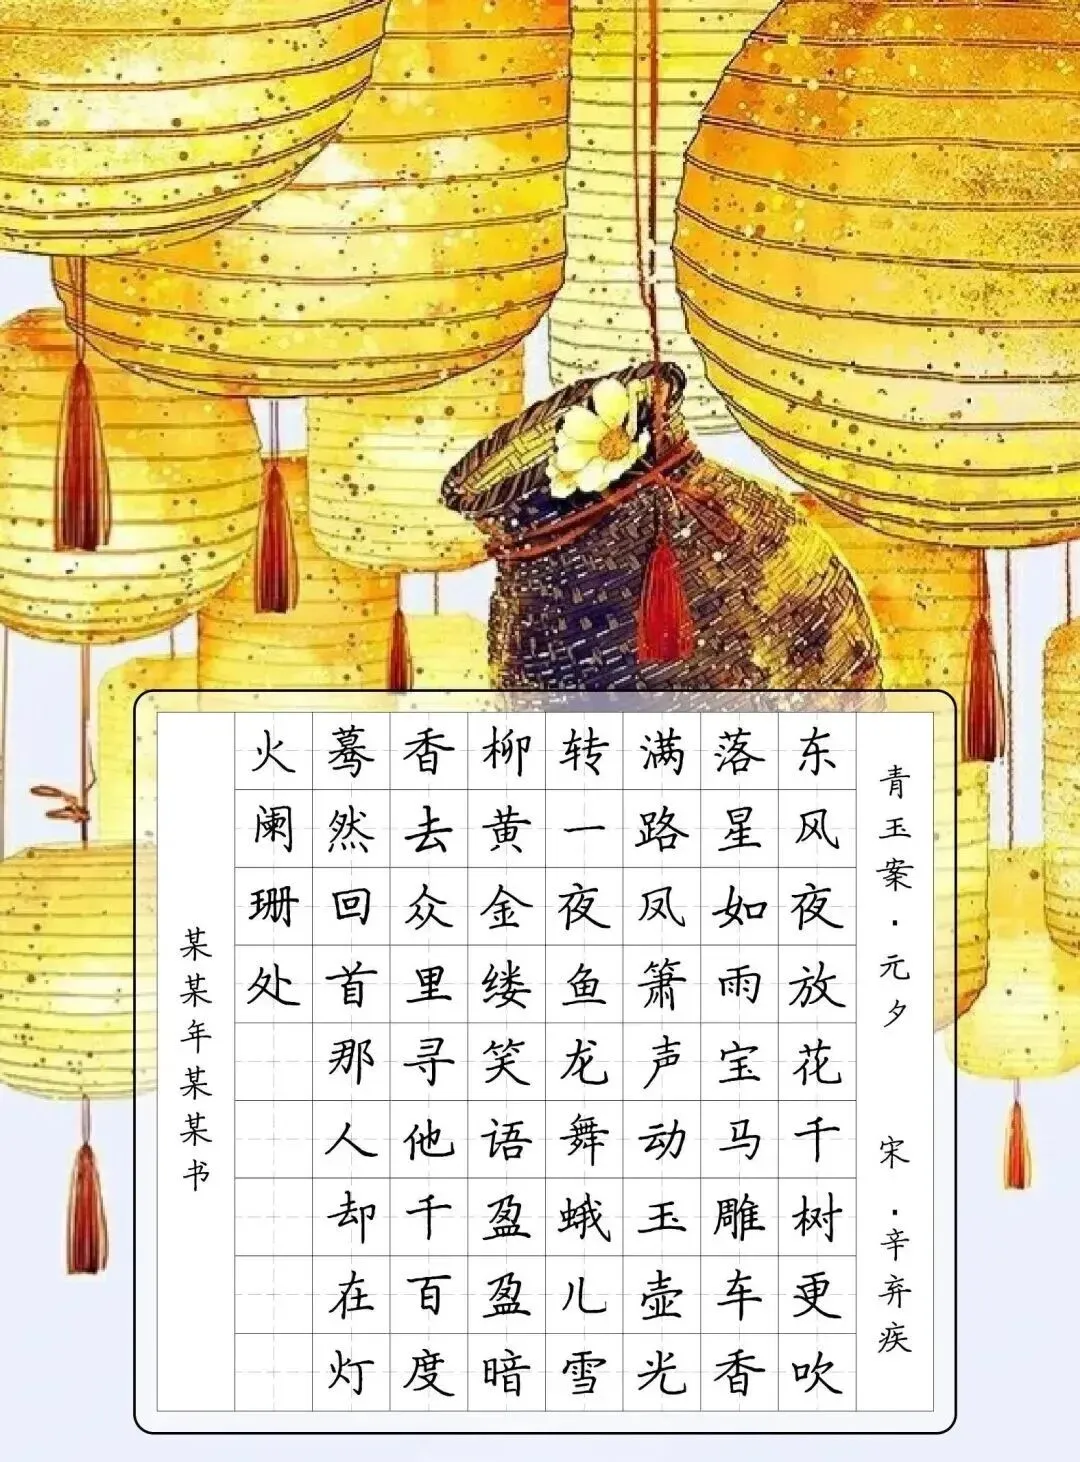 青玉案·元夕 宋·辛弃疾
东风夜放花千树更吹
落星如雨宝马雕车香
满路凤箫声动玉壶光
转一夜鱼龙舞蛾儿雪
柳黄金缕笑语盈盈暗
香去众里寻他千百度
蓦然回首那人却在灯
火阑珊处
某某年某某书